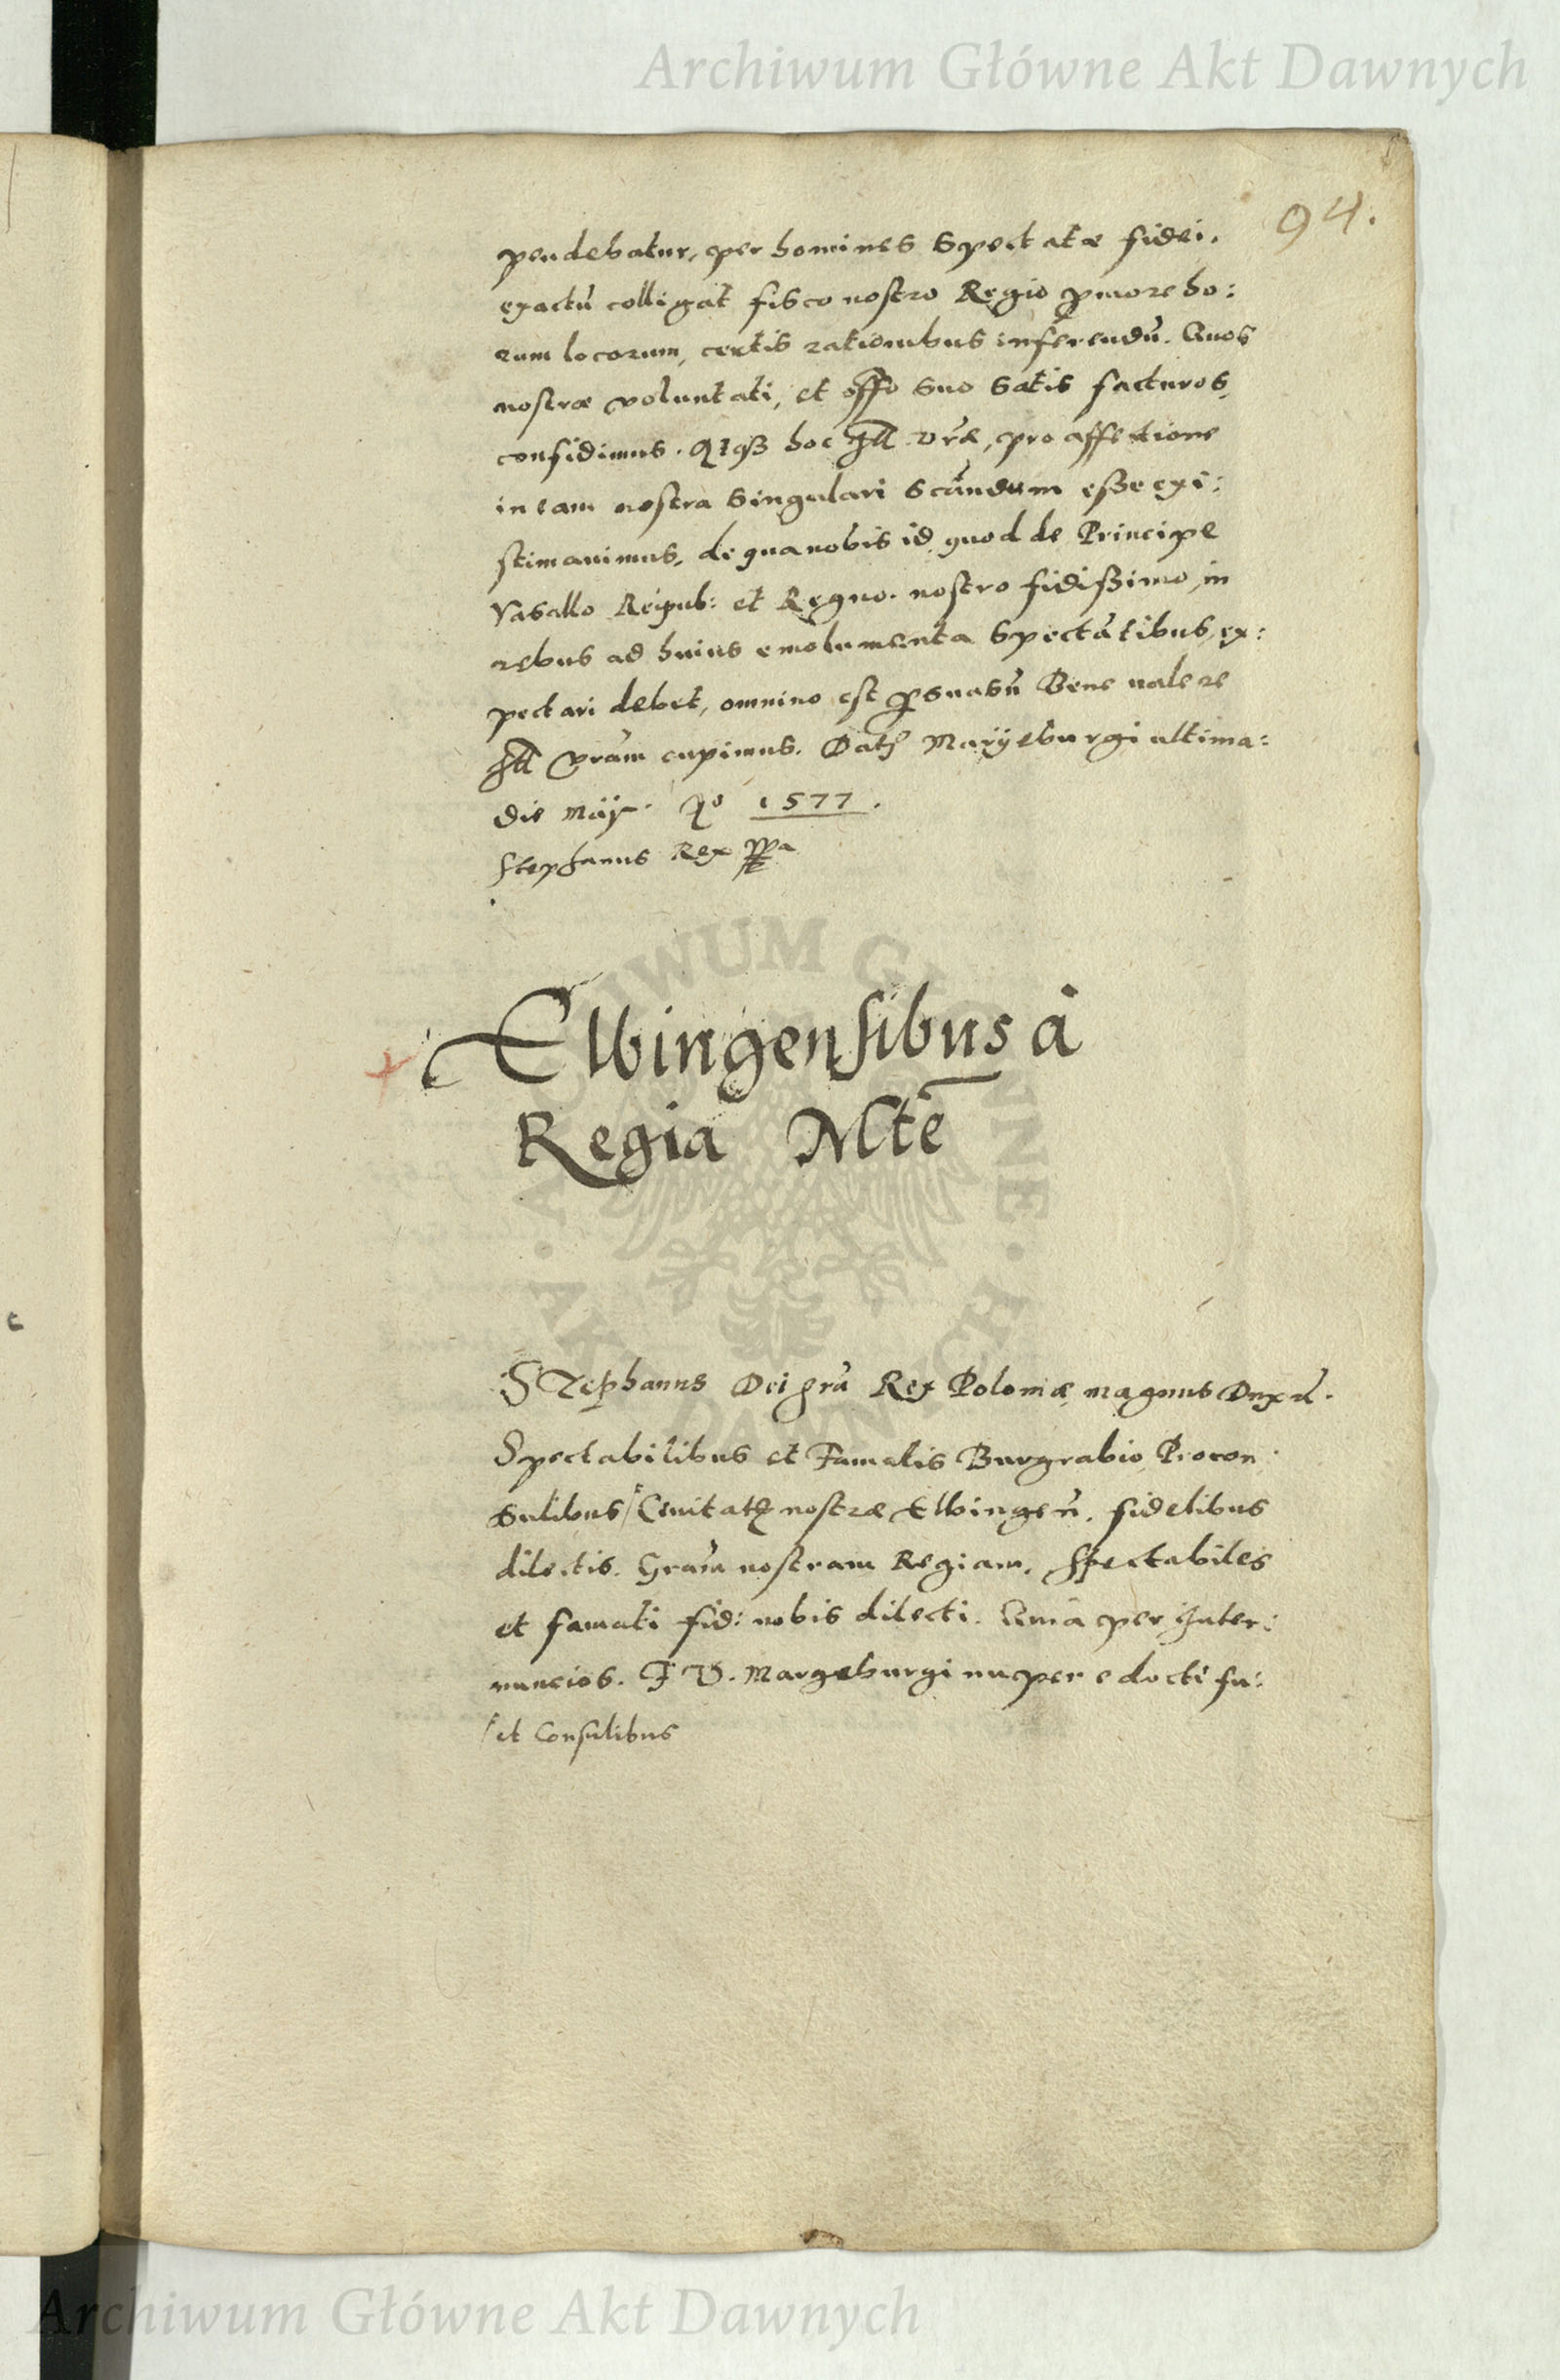 Archiwum Główne Akt Dawnych
94.
pendebatur, per homines Spectatæ fidei,
exactũ colligat fisco nostro Regio p more ho:
rum locorum, certis rationibus inferendũ. Quos
nostræ voluntati, et offo suo satis facturos,
confidimus. Atqȝ hoc Ill vræ, pro affectione
in eam nostra singulari scãndum esse exi:
stimauimus, de qua nobis id, quod de Principe
Vasallo Reipub: et Regno nostro fidissimo, in
rebus ad huius emolumenta Spectãtibus, ex:
pectari debet, omnino est psuasũ Bene valere
Ill vram cupimus. Datȝ Marÿeburgi ultima:
die Maÿ. Aº 1577.
Stephanus Rex ppa
Elbingensibus à
Regia Mte
STephanus Dei gra Rex Poloniæ, magnus Dux rc.
Spectabilibus et Famatis Burgrabio Procon
sulibus / Ciuitatȝ nostræ Elbingen. fidelibus
dilectis. Gram nostram Regiam. Spectabiles
et famati fid: nobis dilecti. Quia per Inter:
nuncios. F V. Margeburgi nuper edocti fu:
/ et Consulibus
ARCHIWUM GŁÓWNE · AKT DAWNYCH ·
Archiwum Główne Akt Dawnych